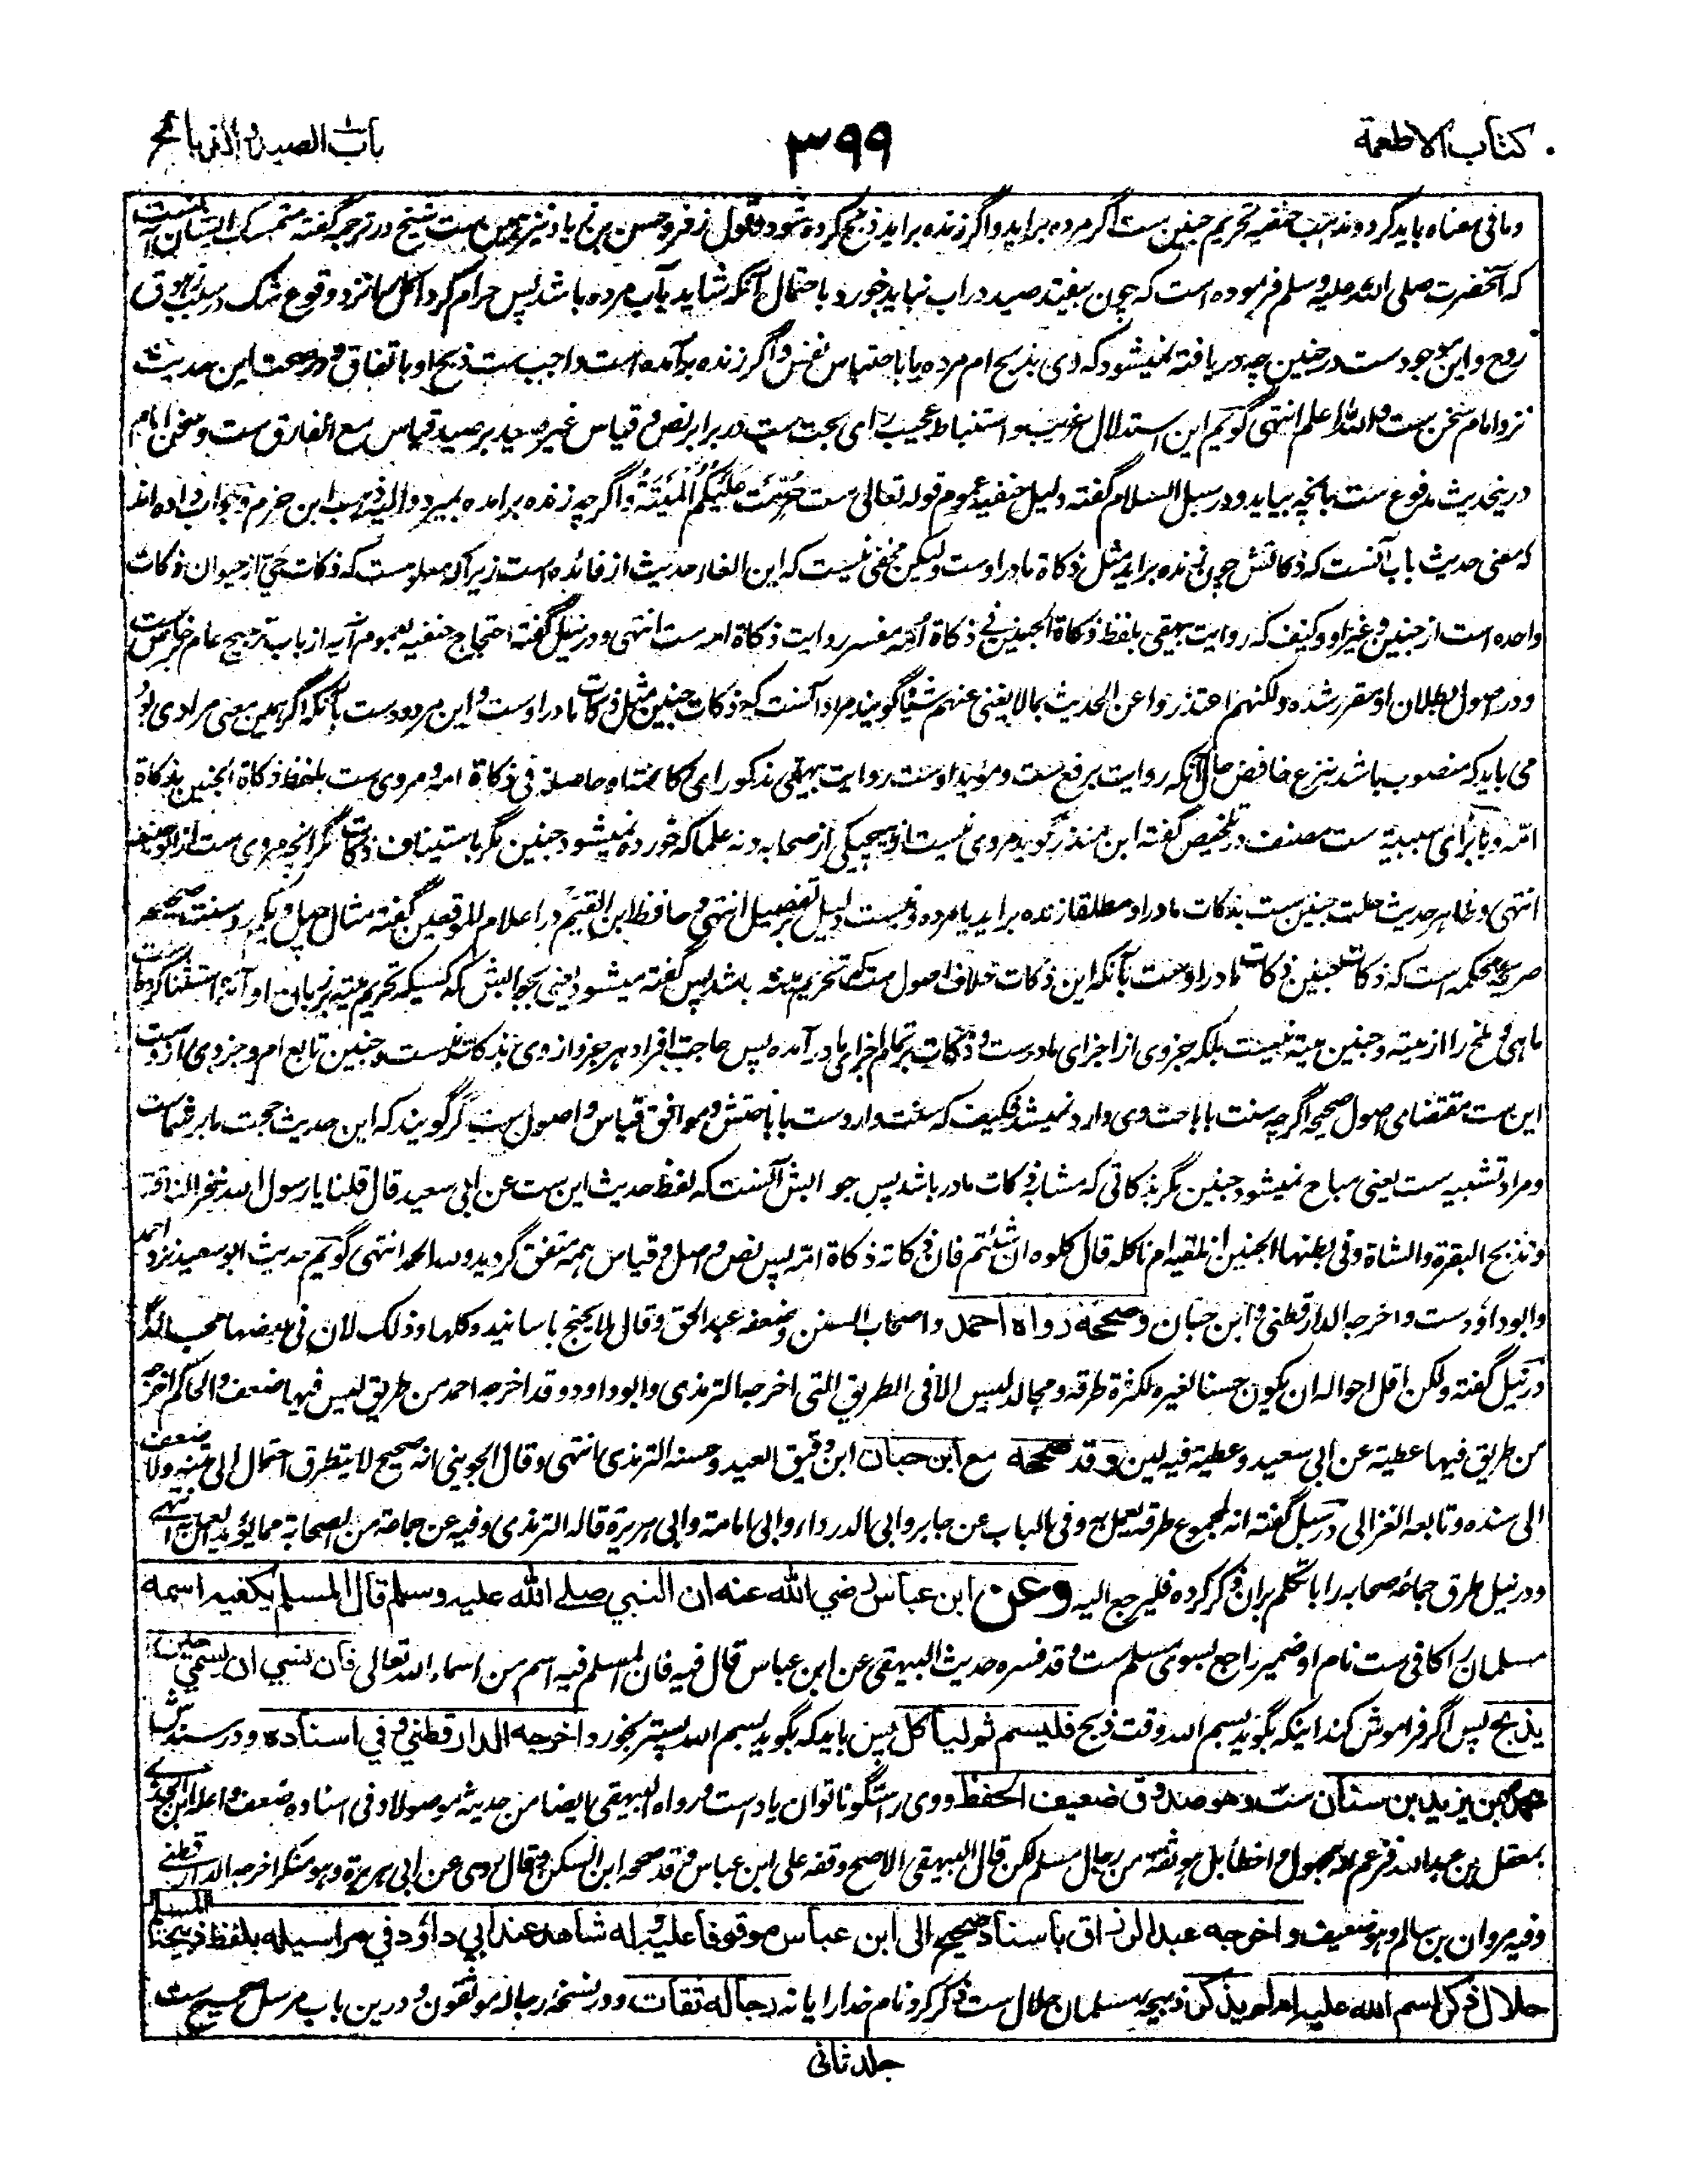 كتاب الاطعمة
۳۹۹
باب الصيد والذبائح
ومافی معناه باید گرد ومذهب حنفیه تحریم جنین ست اگر مرده براید واگر زنده براید ذبح کرده شود وقول زفر وحسن بن زیاد نیز همین ست شیخ در ترجمه گفته متمسک ایشان آنست
که آنحضرت صلی الله علیه وسلم فرموده است که چون بیفتد صید در آب نباید خورد باحتمال آنکه شاید بآب مرده باشد پس حرام گردد اکل نزد وقوع شک در سبب زهوق
روح واین موجودست در جنین چه دریافته نمیشود که وی بذبح ام مرده یا باحتباس نفس واگر زنده برآمده است واجب ست ذبح او باتفاق ودر صحت این حدیث
نزد امام سخن ست والله اعلم انتهی گویم این استدلال غریب واستنباط عجیب رای بحت ست در برابر نص وقیاس غیر صید بر صید قیاس مع الفارق ست وسخن امام
درینحدیث مدفوع ست بانچه بیاید ودر سبل السلام گفته دلیل حنفیه عموم قوله تعالی ست حُرِّمَتْ عَلَيْكُمُ الْمَيْتَةُ واگرچه زنده برامده بمیرد والیه ذهب ابن حزم وجواب داده اند
که معنی حدیث باب آنست که ذکاتش چون زنده براید مثل ذکاة مادر اوست ولیکن مخفی نیست که این الغار حدیث از فائده است زیراکه معلوم ست که ذکات حی از حیوان ذکات
واحده است از جنین وغیر او وکیف که روایت بیهقی بلفظ ذكاة الجنين في ذكاة امه مفسر روایت ذکاة امه ست انتهی ودر نیل گفته احتجاج حنفیه بعموم آیه از باب ترجیح عام بر خاص ست
ودر اصول بطلان او مقرر شده ولكنهم اعتذروا عن الحديث بمالا يغني عنهم شيئا گویند مراد آنست که ذکات جنین مثل ذکات مادر اوست واین مردودست بآنکه اگر همین معنی مراد می بود
می باید که منصوب باشد بنزع خافض حال آنکه روایت برفع ست ومؤید اوست روایت بیهقی مذکور ای كائنة او حاصلة في ذكاة امه ومروی ست بلفظ ذكاة الجنين بذكاة
امه وبا برای سببیة ست مصنف در تلخیص گفته ابن منذر گوید مروی نیست از هیچیکی از صحابه ونه علما که خورده نمیشود جنین مگر باستیناف ذکات مگر انچه مروی ست از ابو حنیفه
انتهی وظاهر حدیث حلت جنین ست بذکات مادر او مطلقا زنده براید یا مرده ونیست دلیل بر تفصیل انتهی وحافظ ابن القیم در اعلام الموقعین گفته مثال چهل ویکم رد سنت صحیحه
صریحه محکمه است که ذکات جنین ذکات مادر اوست بآنکه این ذکات خلاف اصول ست که تحریم میته باشد پس گفته میشود یعنی بجوابش که کسیکه تحریم میته بر زبان او آمد استثنا کرده است
ماهی وملخ را از میته وجنین میته نیست بلکه جزوی از اجزای مادرست وذکات بر تمام اجزای مادر آمده پس حاجت افراد هر جزو از وی بذکات نیست وجنین تابع ام وجزوی ازوست
این ست مقتضای اصول صحیحه اگرچه سنت باباحت وی وارد نمیشد فکیف که سنت واردست باباحتش وموافق قیاس واصول ست گر گویند که این حدیث حجت ما بر شماست
ومراد تشبیه ست یعنی مباح نمیشود جنین مگر بذکاتی که مشابه ذکات مادر باشد پس جوابش آنست که لفظ حدیث این ست عن ابي سعيد قال قلنا يا رسول الله ننحر الناقة
ونذبح البقرة والشاة وفي بطنها الجنين انلقيه ام ناكله قال كلوه ان شئتم فان ذكاته ذكاة امه پس نص واصل وقیاس همه متفق گردید ولله الحمد انتهی گویم حدیث ابو سعید نزد احمد
وابو داؤدست واخرجه الدارقطني وابن حبان وصححه رواه احمد واصحاب السنن وضعفه عبد الحق وقال لا يحتج باسانيده كلها وذلك لان في بعضها مجالد
در نیل گفته ولكن اقل احواله ان يكون حسنا لغيره لكثرة طرقه ومجالد ليس الا في الطريق التي اخرجها الترمذي وابو داود وقد اخرجه احمد من طريق ليس فيها ضعف والحاكم اخرجه
من طريق فيها عطية عن ابي سعيد وعطية فيه لين وقد صححه مع ابن حبان ابن دقيق العيد وحسنه الترمذي انتهی وقال الجويني انه صحيح لا يتطرق احتمال الى متنه ولا ضعف
الى سنده وتابعه الغزالي در سبل گفته انه بمجموع طرقه يعمل به وفي الباب عن جابر وابي الدرداء وابي امامة وابي هريرة قاله الترمذي وفيه عن جماعة من الصحابة مما يؤيد العمل به انتهى
ودر نیل طرق جماعه صحابه را با تکلم بران ذکر کرده فليرجع اليه وعن ابن عباس رضي الله عنه ان النبي صلى الله عليه وسلم قال المسلم يكفيه اسمه
مسلمان را کافی ست نام او ضمیر راجع بسوی مسلم ست وقد فسره حديث البيهقي عن ابن عباس قال فيه فان المسلم فيه اسم من اسماء الله تعالى فان نسي ان يسمي حين
يذبح پس اگر فراموش کند اینکه بگوید بسم الله وقت ذبح فليسم ثم ليأكل پس باید که بگوید بسم الله پستر بخورد اخرجه الدارقطني وفي اسناده ودر سندش
محمد بن يزيد بن سنان ست وهو صدوق ضعيف الحفظ ووی راستگو ناتوان یادست ورواه البيهقي ايضا من حديثه موصولا وفي اسناده ضعف واعله ابن الجوزي
بمعقل بن عبد الله فزعم انه مجهول واخطأ بل هو ثقة من رجال مسلم لكن قال البيهقي الاصح وقفه على ابن عباس وقد صححه ابن السكن وقال روي عن ابي هريرة وهو منكر اخرجه الدارقطني
وفيه مروان بن سالم وهو ضعيف واخرجه عبد الرزاق باسناد صحيح الى ابن عباس موقوفا عليه وله شاهد عند ابي داؤد في مراسيله بلفظ ذبيحة المسلم
حلال ذكر اسم الله عليه ام لم يذكر ذبیحه مسلمان حلال ست ذکر کرد نام خدا را یا نه رجاله ثقات ودر نسخه رجاله موثقون ودرین باب مرسل صحیح ست
جلد ثانی